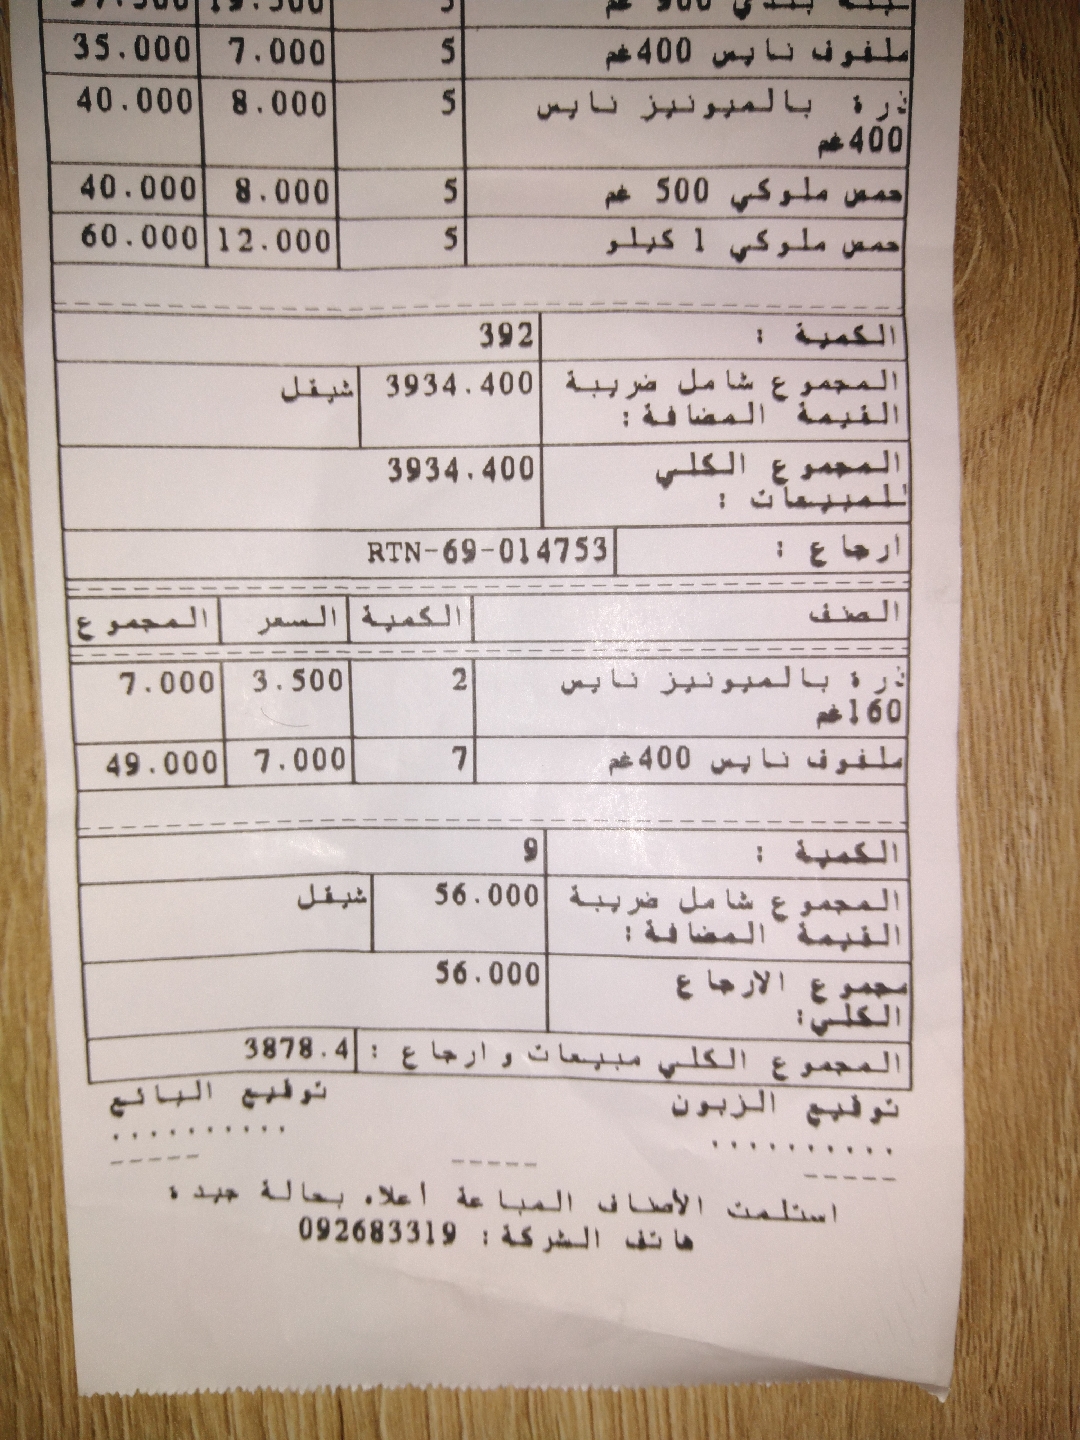 900 غم 5
ملفوف نايس 400غم 5 7.000 35.000
ذرة بالميونيز نايس 5 8.000 40.000
400غم
حمص ملوكي 500 غم 5 8.000 40.000
حمص ملوكي 1 كيلو 5 12.000 60.000
الكمية : 392
المجموع شامل ضريبة 3934.400 شيقل
القيمة المضافة:
المجموع الكلي 3934.400
للمبيعات :
ارجاع : RTN-69-014753
الصنف الكمية السعر المجموع
ذرة بالميونيز نايس 2 3.500 7.000
160غم
ملفوف نايس 400غم 7 7.000 49.000
الكمية : 9
المجموع شامل ضريبة 56.000 شيقل
القيمة المضافة:
مجموع الارجاع 56.000
الكلي:
المجموع الكلي مبيعات و ارجاع : 3878.4
توقيع الزبون توقيع البائع
.......... ..........
----- ----- -----
استلمت الأصناف المباعة أعلاه بحالة جيدة
هاتف الشركة: 092683319